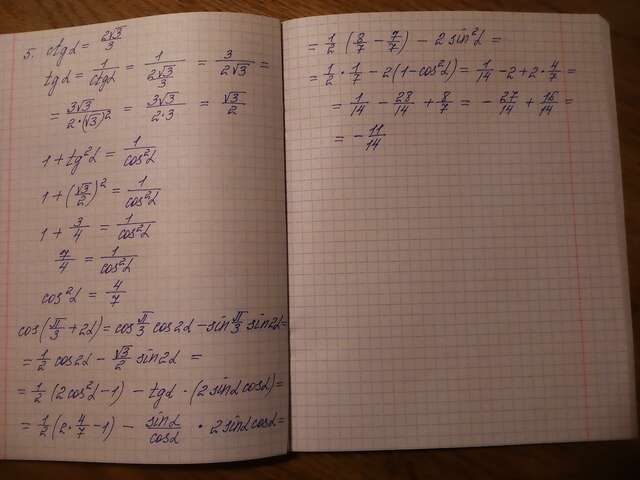 5. ctgα = 2√3/3
tgα = 1/ctgα = 1/(2√3/3) = 3/(2√3) =
= 3√3/(2·(√3)²) = 3√3/(2·3) = √3/2
1 + tg²α = 1/cos²α
1 + (√3/2)² = 1/cos²α
1 + 3/4 = 1/cos²α
7/4 = 1/cos²α
cos²α = 4/7
cos(π/3 + 2α) = cos π/3 cos2α − sin π/3 sin2α =
= 1/2 cos2α − √3/2 sin2α =
= 1/2 (2cos²α − 1) − tgα · (2sinα cosα) =
= 1/2 (2·4/7 − 1) − sinα/cosα · 2sinα cosα =
= 1/2 (8/7 − 7/7) − 2sin²α =
= 1/2 · 1/7 − 2(1 − cos²α) = 1/14 − 2 + 2·4/7 =
= 1/14 − 28/14 + 8/7 = − 27/14 + 16/14 =
= − 11/14